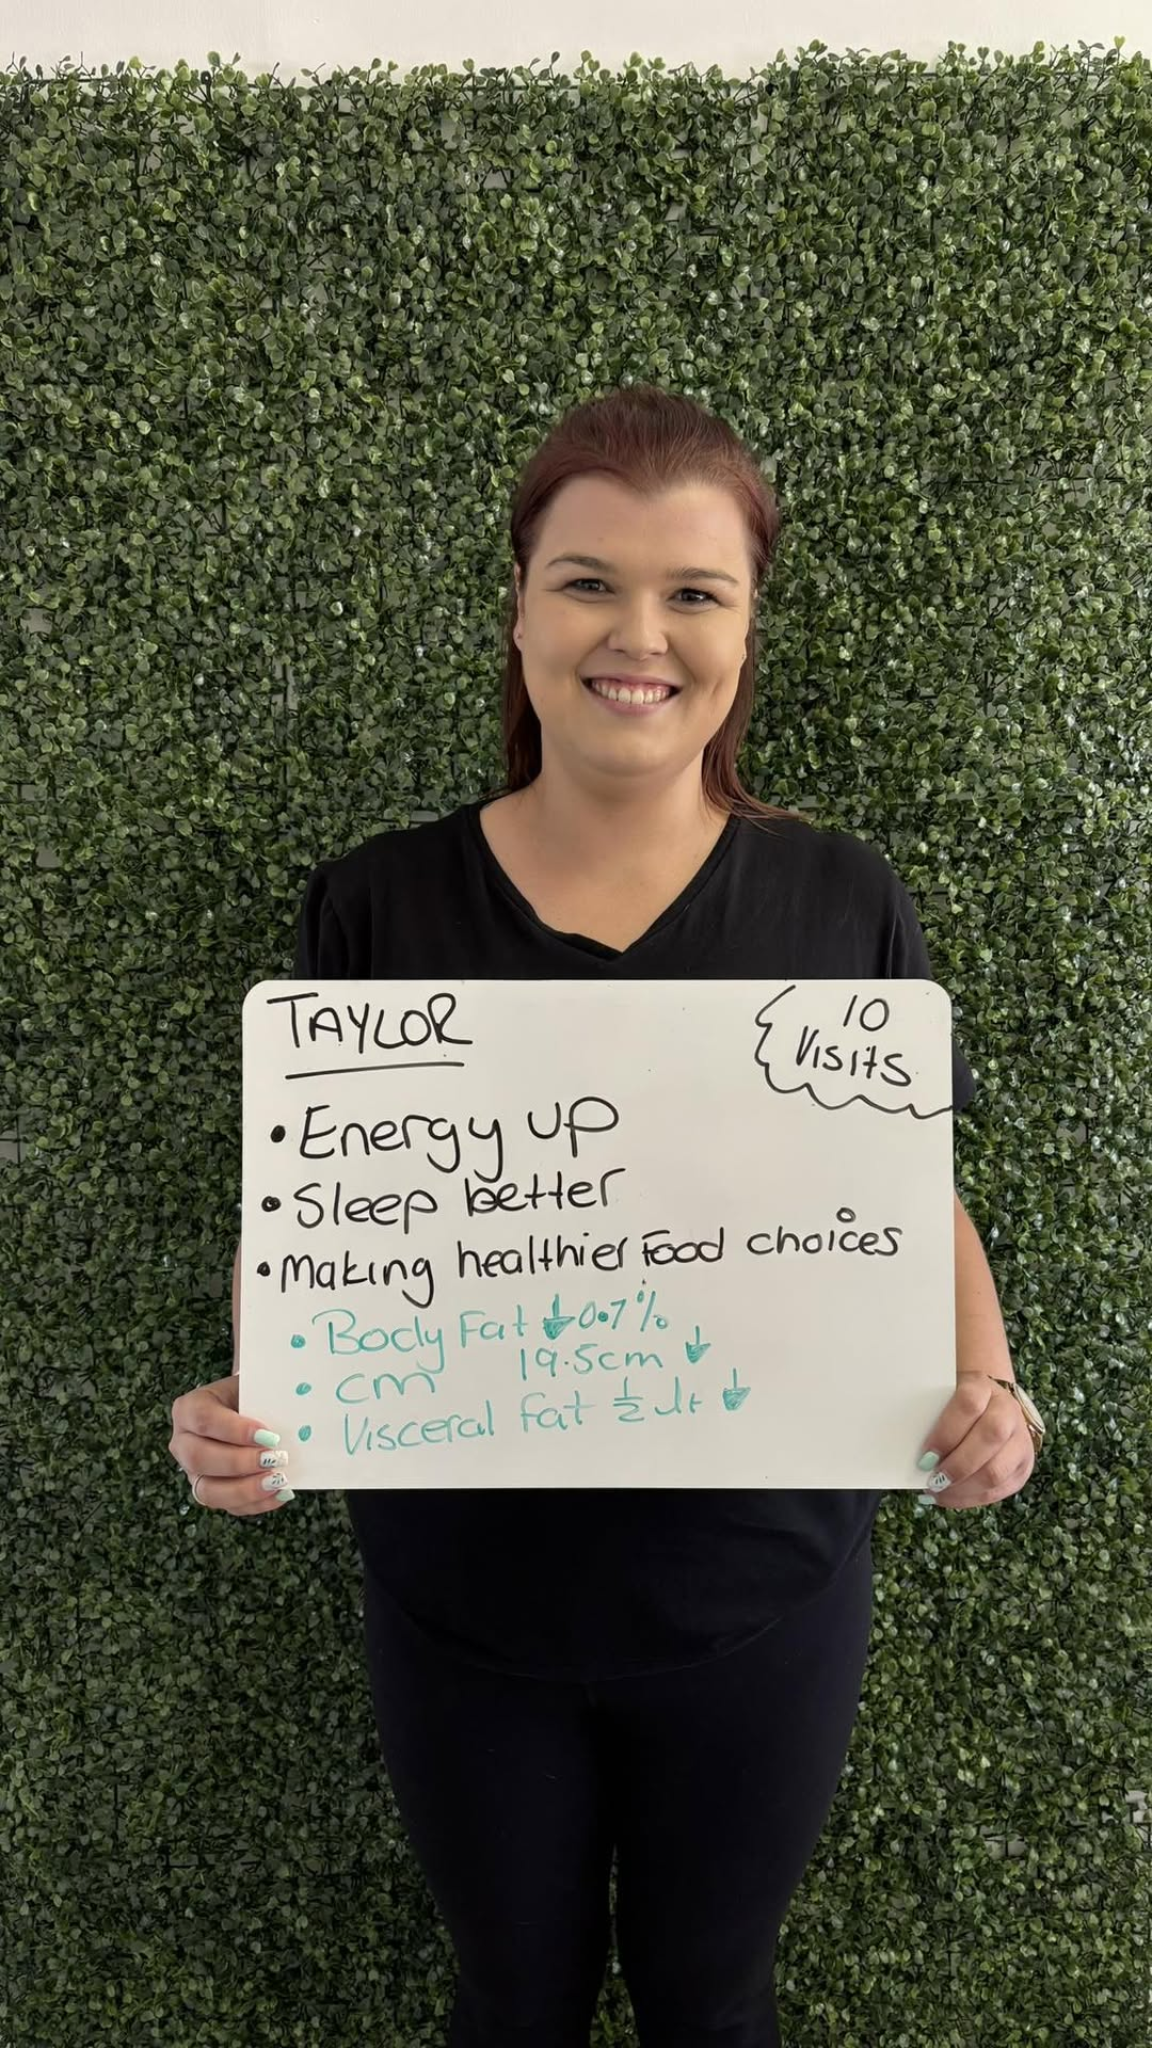 TAYLOR
10
Visits
• Energy up
• Sleep better
• Making healthier Food choices
• Body Fat ↓ 0.7%
• cm 19.5cm ↓
• Visceral fat ½ lt ↓